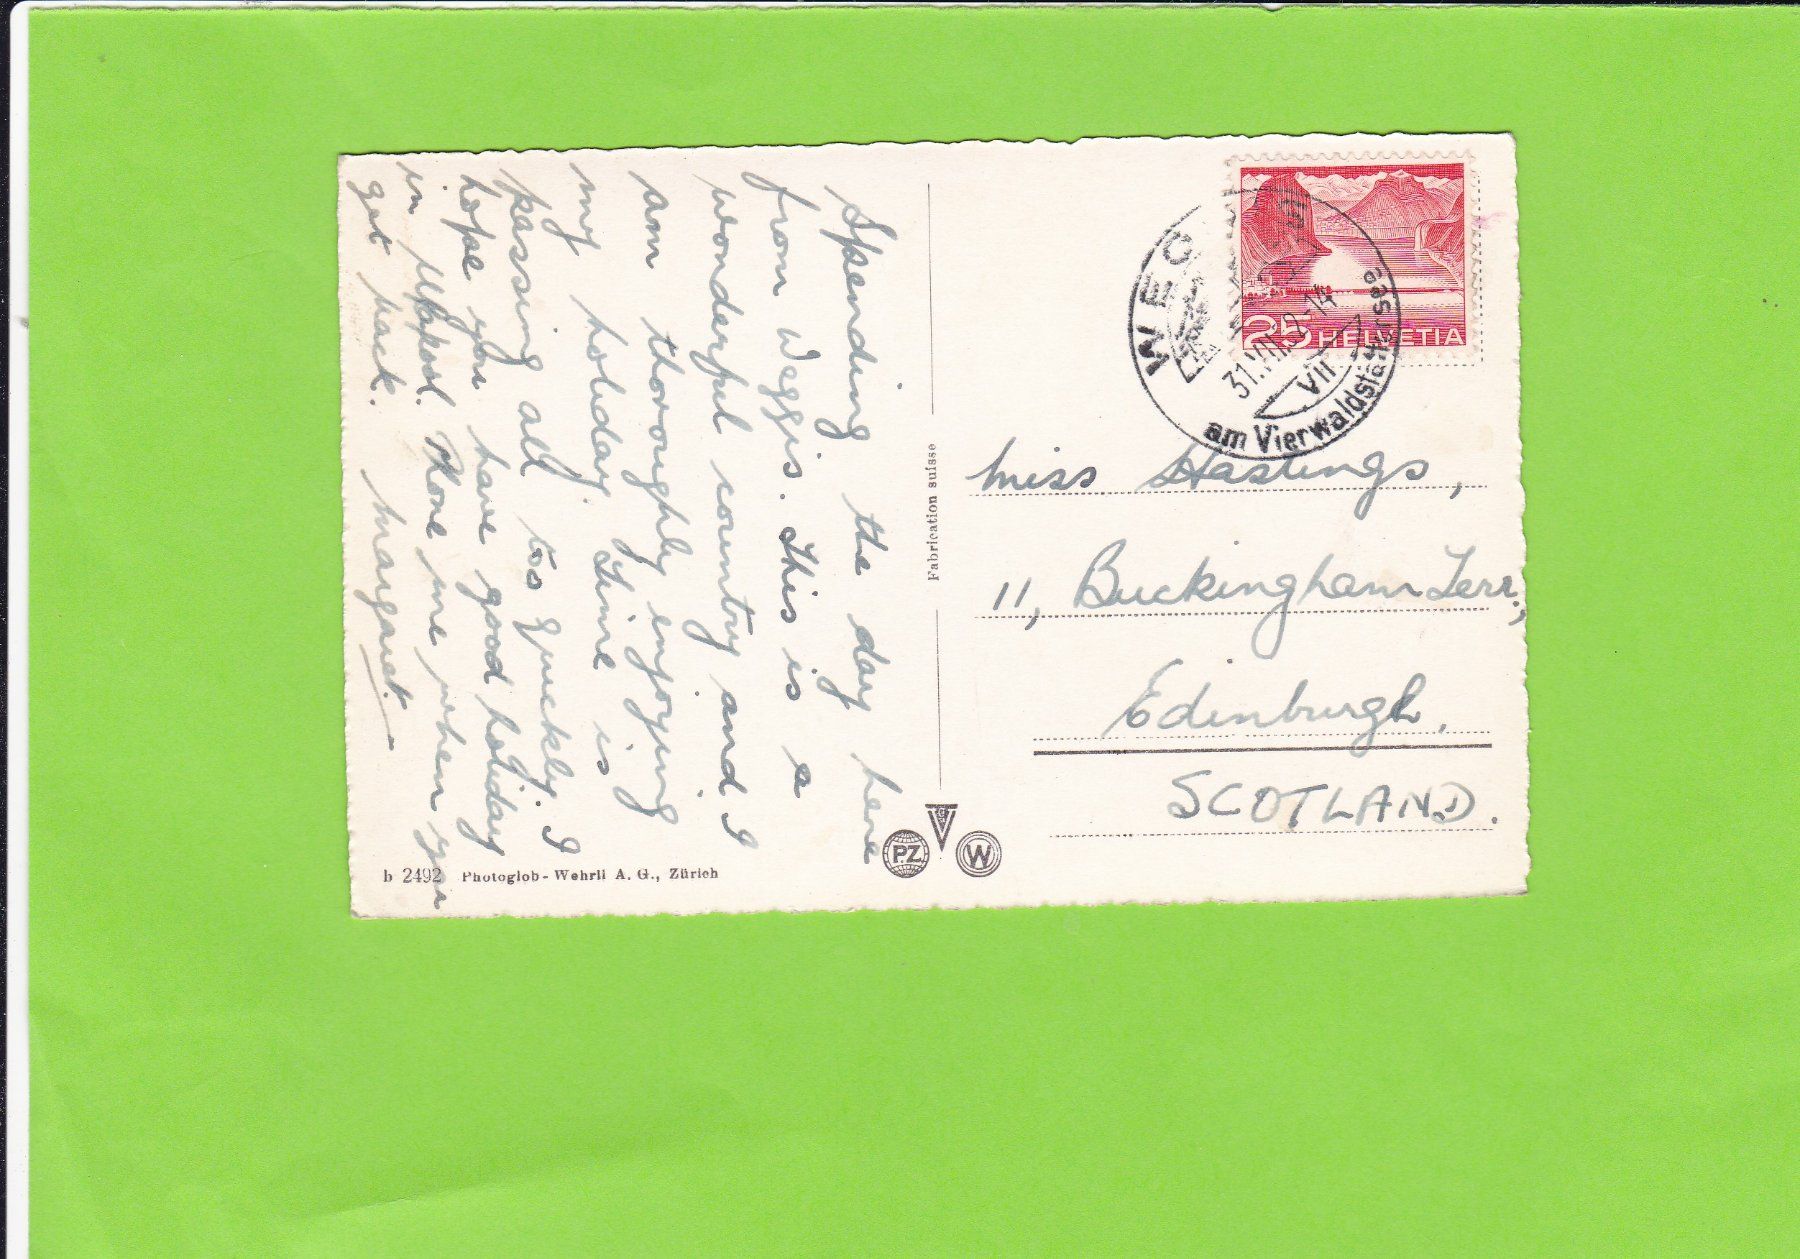 Spending the day here
from Weggis. This is a
wonderful country and I
am thoroughly enjoying
my holiday. Time is
passing all too quickly. I
hope you have good holiday
in . Phone me when you
get back. Margaret.
Fabrication suisse
b 2492 Photoglob-Wehrli A. G., Zürich
P.Z.
W
25 HELVETIA
WEGGIS
31.VII.52-14
VII
am Vierwaldstättersee
Miss Hastings,
11, Buckingham Terr.,
Edinburgh,
SCOTLAND.